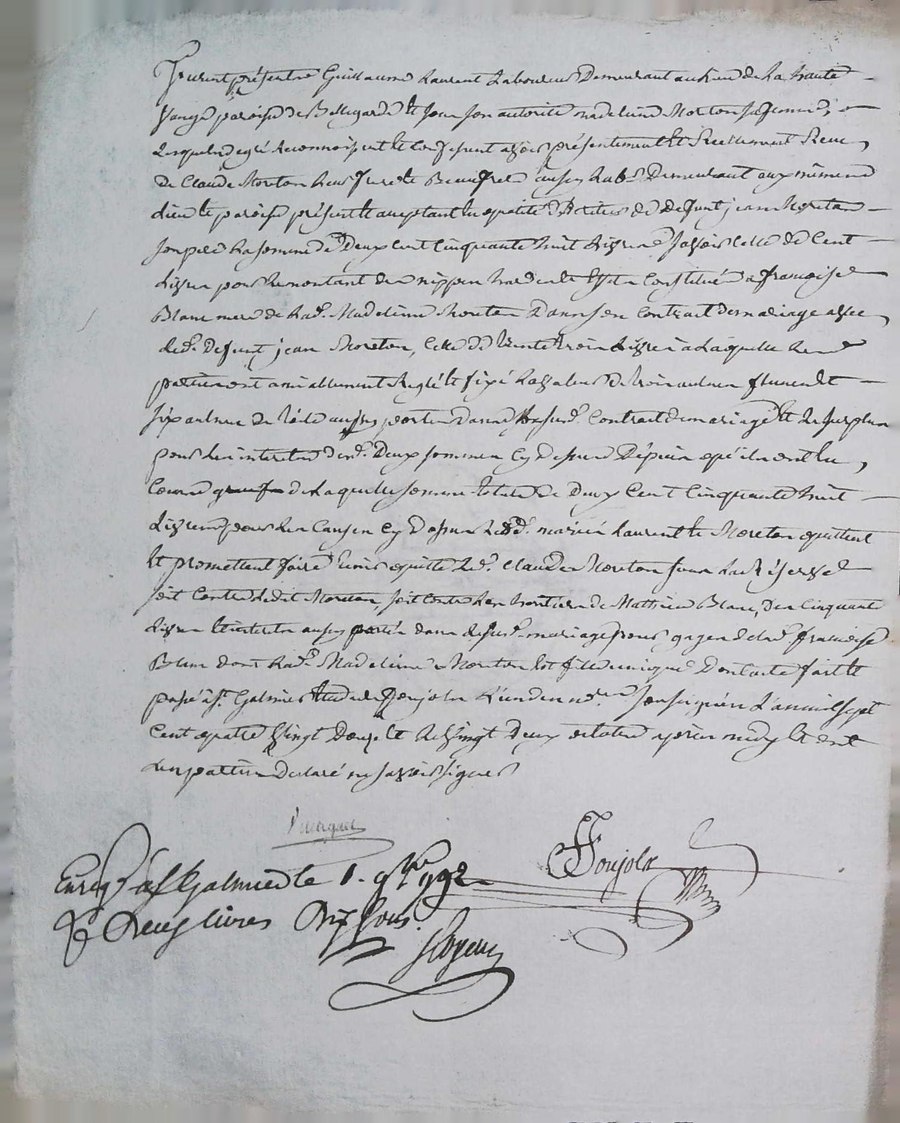 Furent présents Guillaume Laurent Laboureur Demeurant au lieu de La haute
paroisse de Bellegarde et sous son autorité madelaine Moreton sa femme,
Lesquels de gré Reconnoissent et Confessent avoir présentement et Reellement Receu
de Claude Moreton Demeurant aux mêmes
lieu et paroisse présent et acceptant en qualité d'héritier de Defunt jean Moreton
son père La somme de Deux Cent Cinquante huit Livres savoir Celle de Cent
Livres pour Le montant des nippes hardes et effets Constitués a françoise
Blanc mere de Lad. Madelaine Moreton Dans son Contrat de mariage avec
Led. Defunt jean Moreton, Celle de vingt trois Livres a Laquelle Les
parties ont amiablement Reglé et fixé La valeur de trois aulnes et
six aulnes de toile aussy portés dans Le susd. Contrat de mariage et Le surplus
pour Les interets desd. Deux sommes Cy dessus Depuis qu'ils ont eu
Cours de Laquelle somme totale de Deux Cent Cinquante huit
Livres pour Les Causes Cy dessus Lesd. mariés Laurent et Moreton quittent
et promettent faire tenir quitte Led. Claude Moreton sous La Réserve
soit Contre Ledit Moreton, soit Contre Les heritiers de Mathieu Blanc, Des Cinquante
Livres et interets aussy portés dans Le susd. mariage pour gages de lad. françoise
Blanc dont Lad. Madelaine Moreton est fille unique Dont acte fait et
passé a St. Galmier Etude de Ponjols L'un des nores. soussignés L'an mil sept
Cent quatre vingt Douze et Le vingt Deux octobre après midy et ont
Les parties declaré ne savoir signer
Ponjols
Enreg. à St Galmier le 1. 9bre 1792
R. Deux livres Dix sous.